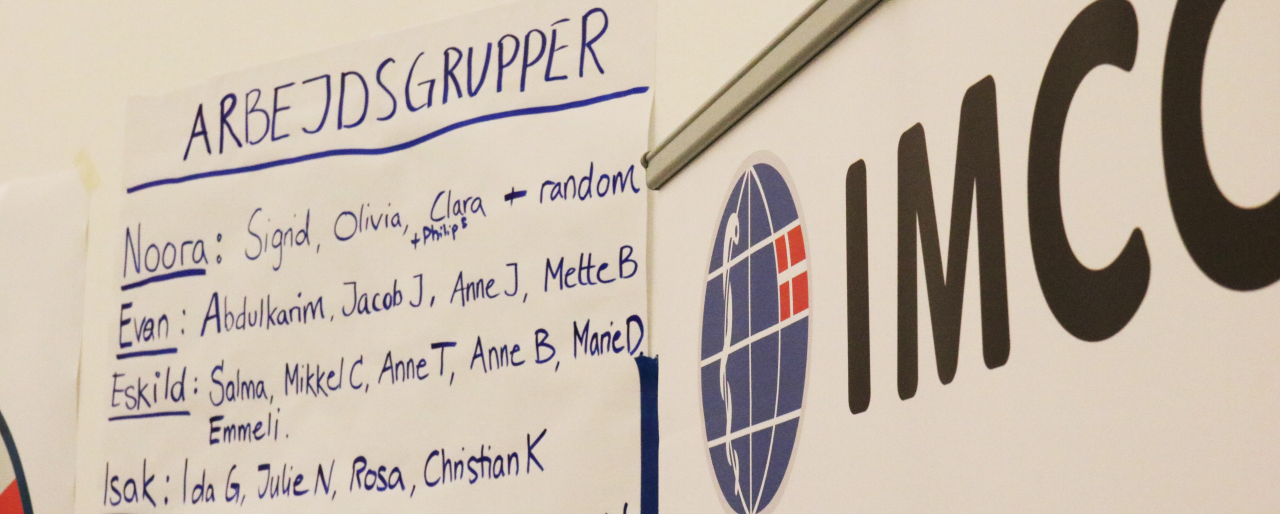 ARBEJDSGRUPPER
Noora: Sigrid, Olivia, Clara + random
+ Philip S
Evan: Abdulkarim, Jacob J, Anne J, Mette B
Eskild: Salma, Mikkel C, Anne T, Anne B, Marie D,
Emmeli.
Isak: Ida G, Julie N, Rosa, Christian K
IMCC